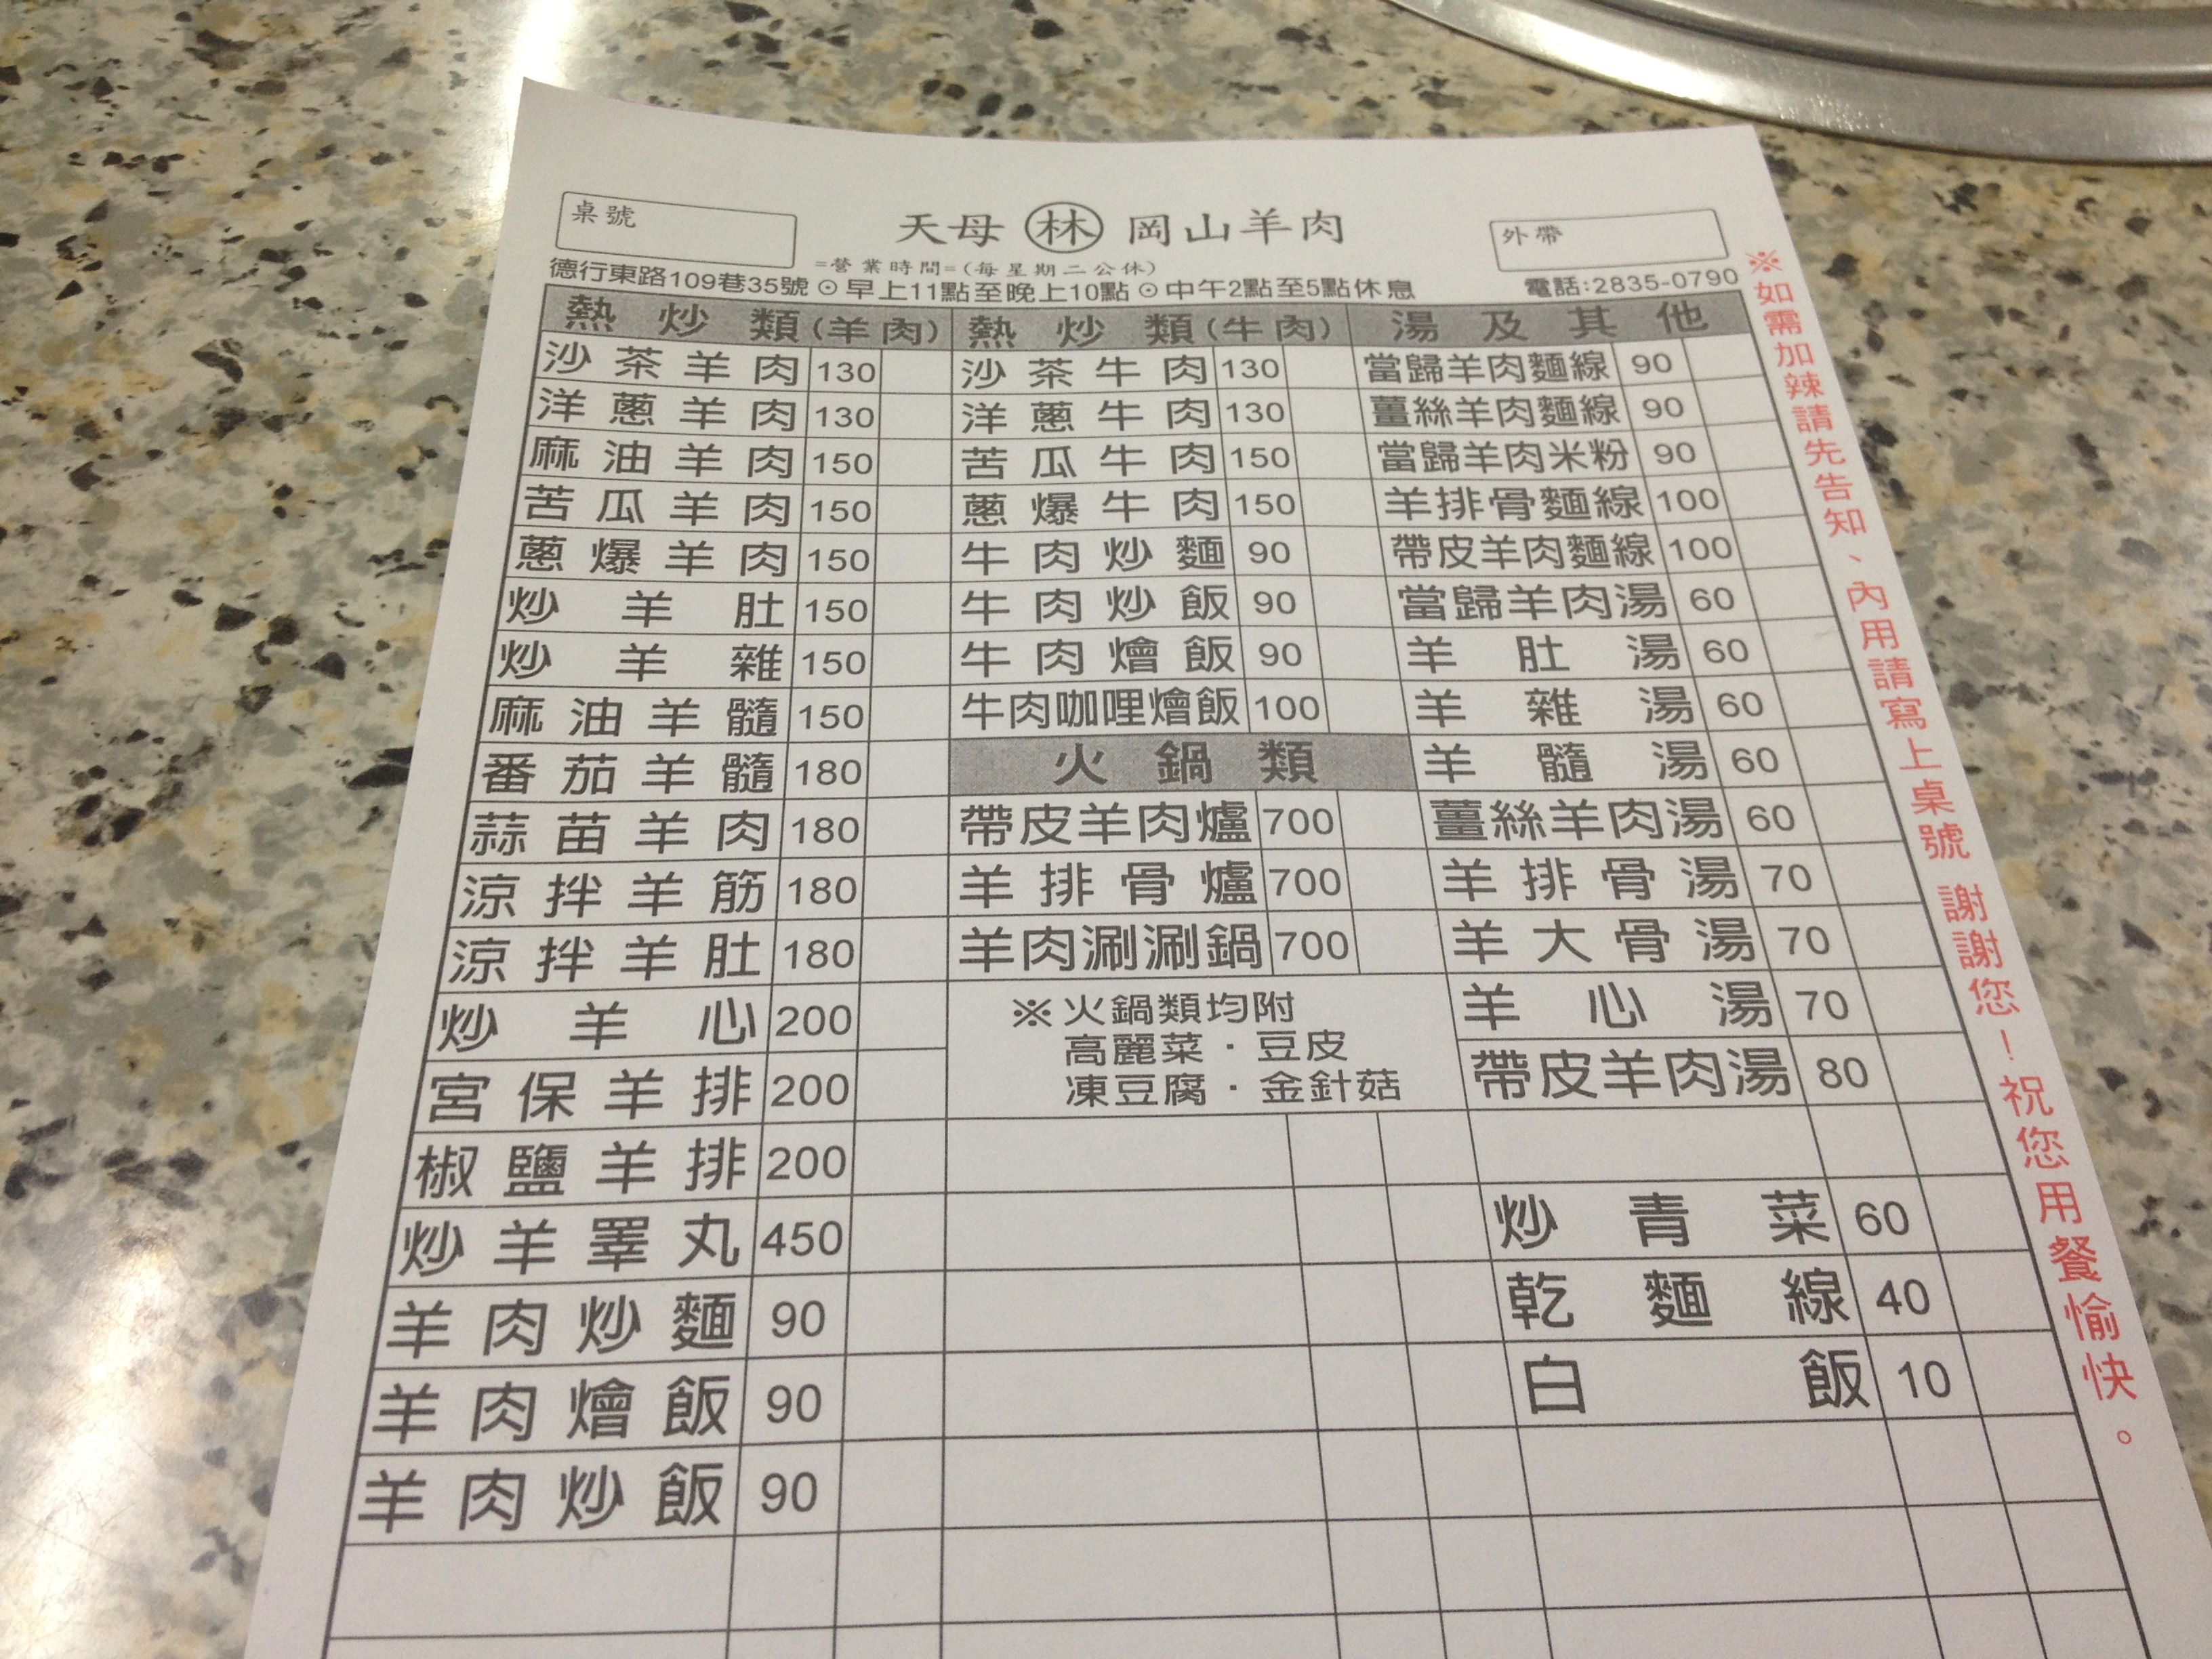 桌號
天母 林 岡山羊肉
外帶
=營業時間=(每星期二公休)
德行東路109巷35號⊙早上11點至晚上10點⊙中午2點至5點休息
電話:2835-0790
熱炒類(羊肉)
沙茶羊肉 130
洋蔥羊肉 130
麻油羊肉 150
苦瓜羊肉 150
蔥爆羊肉 150
炒羊肚 150
炒羊雜 150
麻油羊髓 150
番茄羊髓 180
蒜苗羊肉 180
涼拌羊筋 180
涼拌羊肚 180
炒羊心 200
宮保羊排 200
椒鹽羊排 200
炒羊睪丸 450
羊肉炒麵 90
羊肉燴飯 90
羊肉炒飯 90
熱炒類(牛肉)
沙茶牛肉 130
洋蔥牛肉 130
苦瓜牛肉 150
蔥爆牛肉 150
牛肉炒麵 90
牛肉炒飯 90
牛肉燴飯 90
牛肉咖哩燴飯 100
火鍋類
帶皮羊肉爐 700
羊排骨爐 700
羊肉涮涮鍋 700
※火鍋類均附
高麗菜·豆皮
凍豆腐·金針菇
湯及其他
當歸羊肉麵線 90
薑絲羊肉麵線 90
當歸羊肉米粉 90
羊排骨麵線 100
帶皮羊肉麵線 100
當歸羊肉湯 60
羊肚湯 60
羊雜湯 60
羊髓湯 60
薑絲羊肉湯 60
羊排骨湯 70
羊大骨湯 70
羊心湯 70
帶皮羊肉湯 80
炒青菜 60
乾麵線 40
白飯 10
※如需加辣請先告知、內用請寫上桌號 謝謝您!祝您用餐愉快。